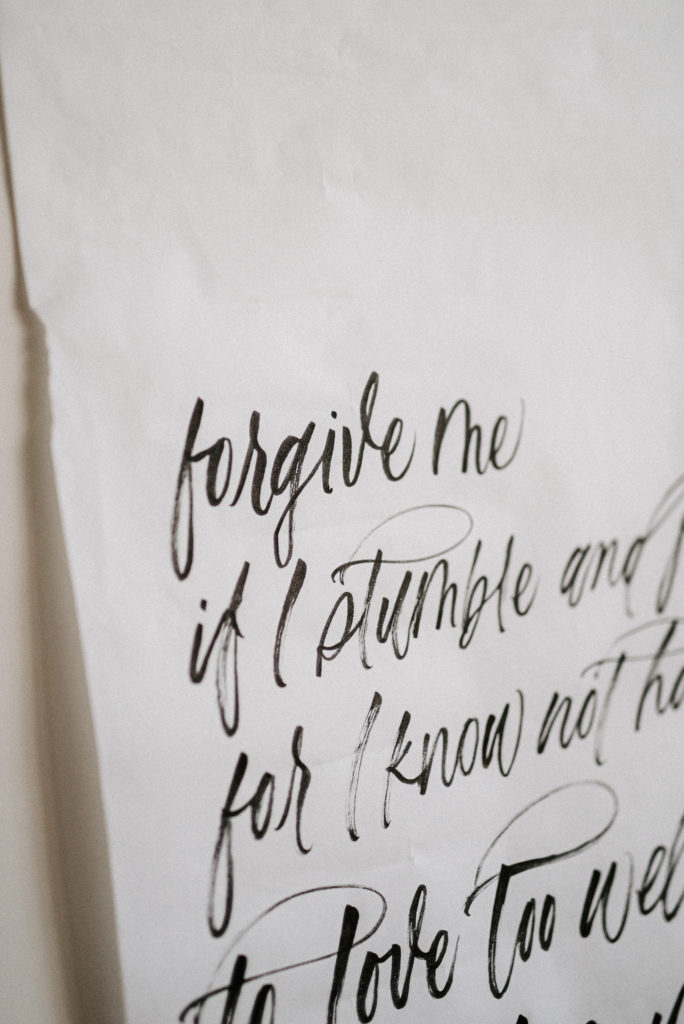 forgive me
if I stumble and
for I know not
to love too